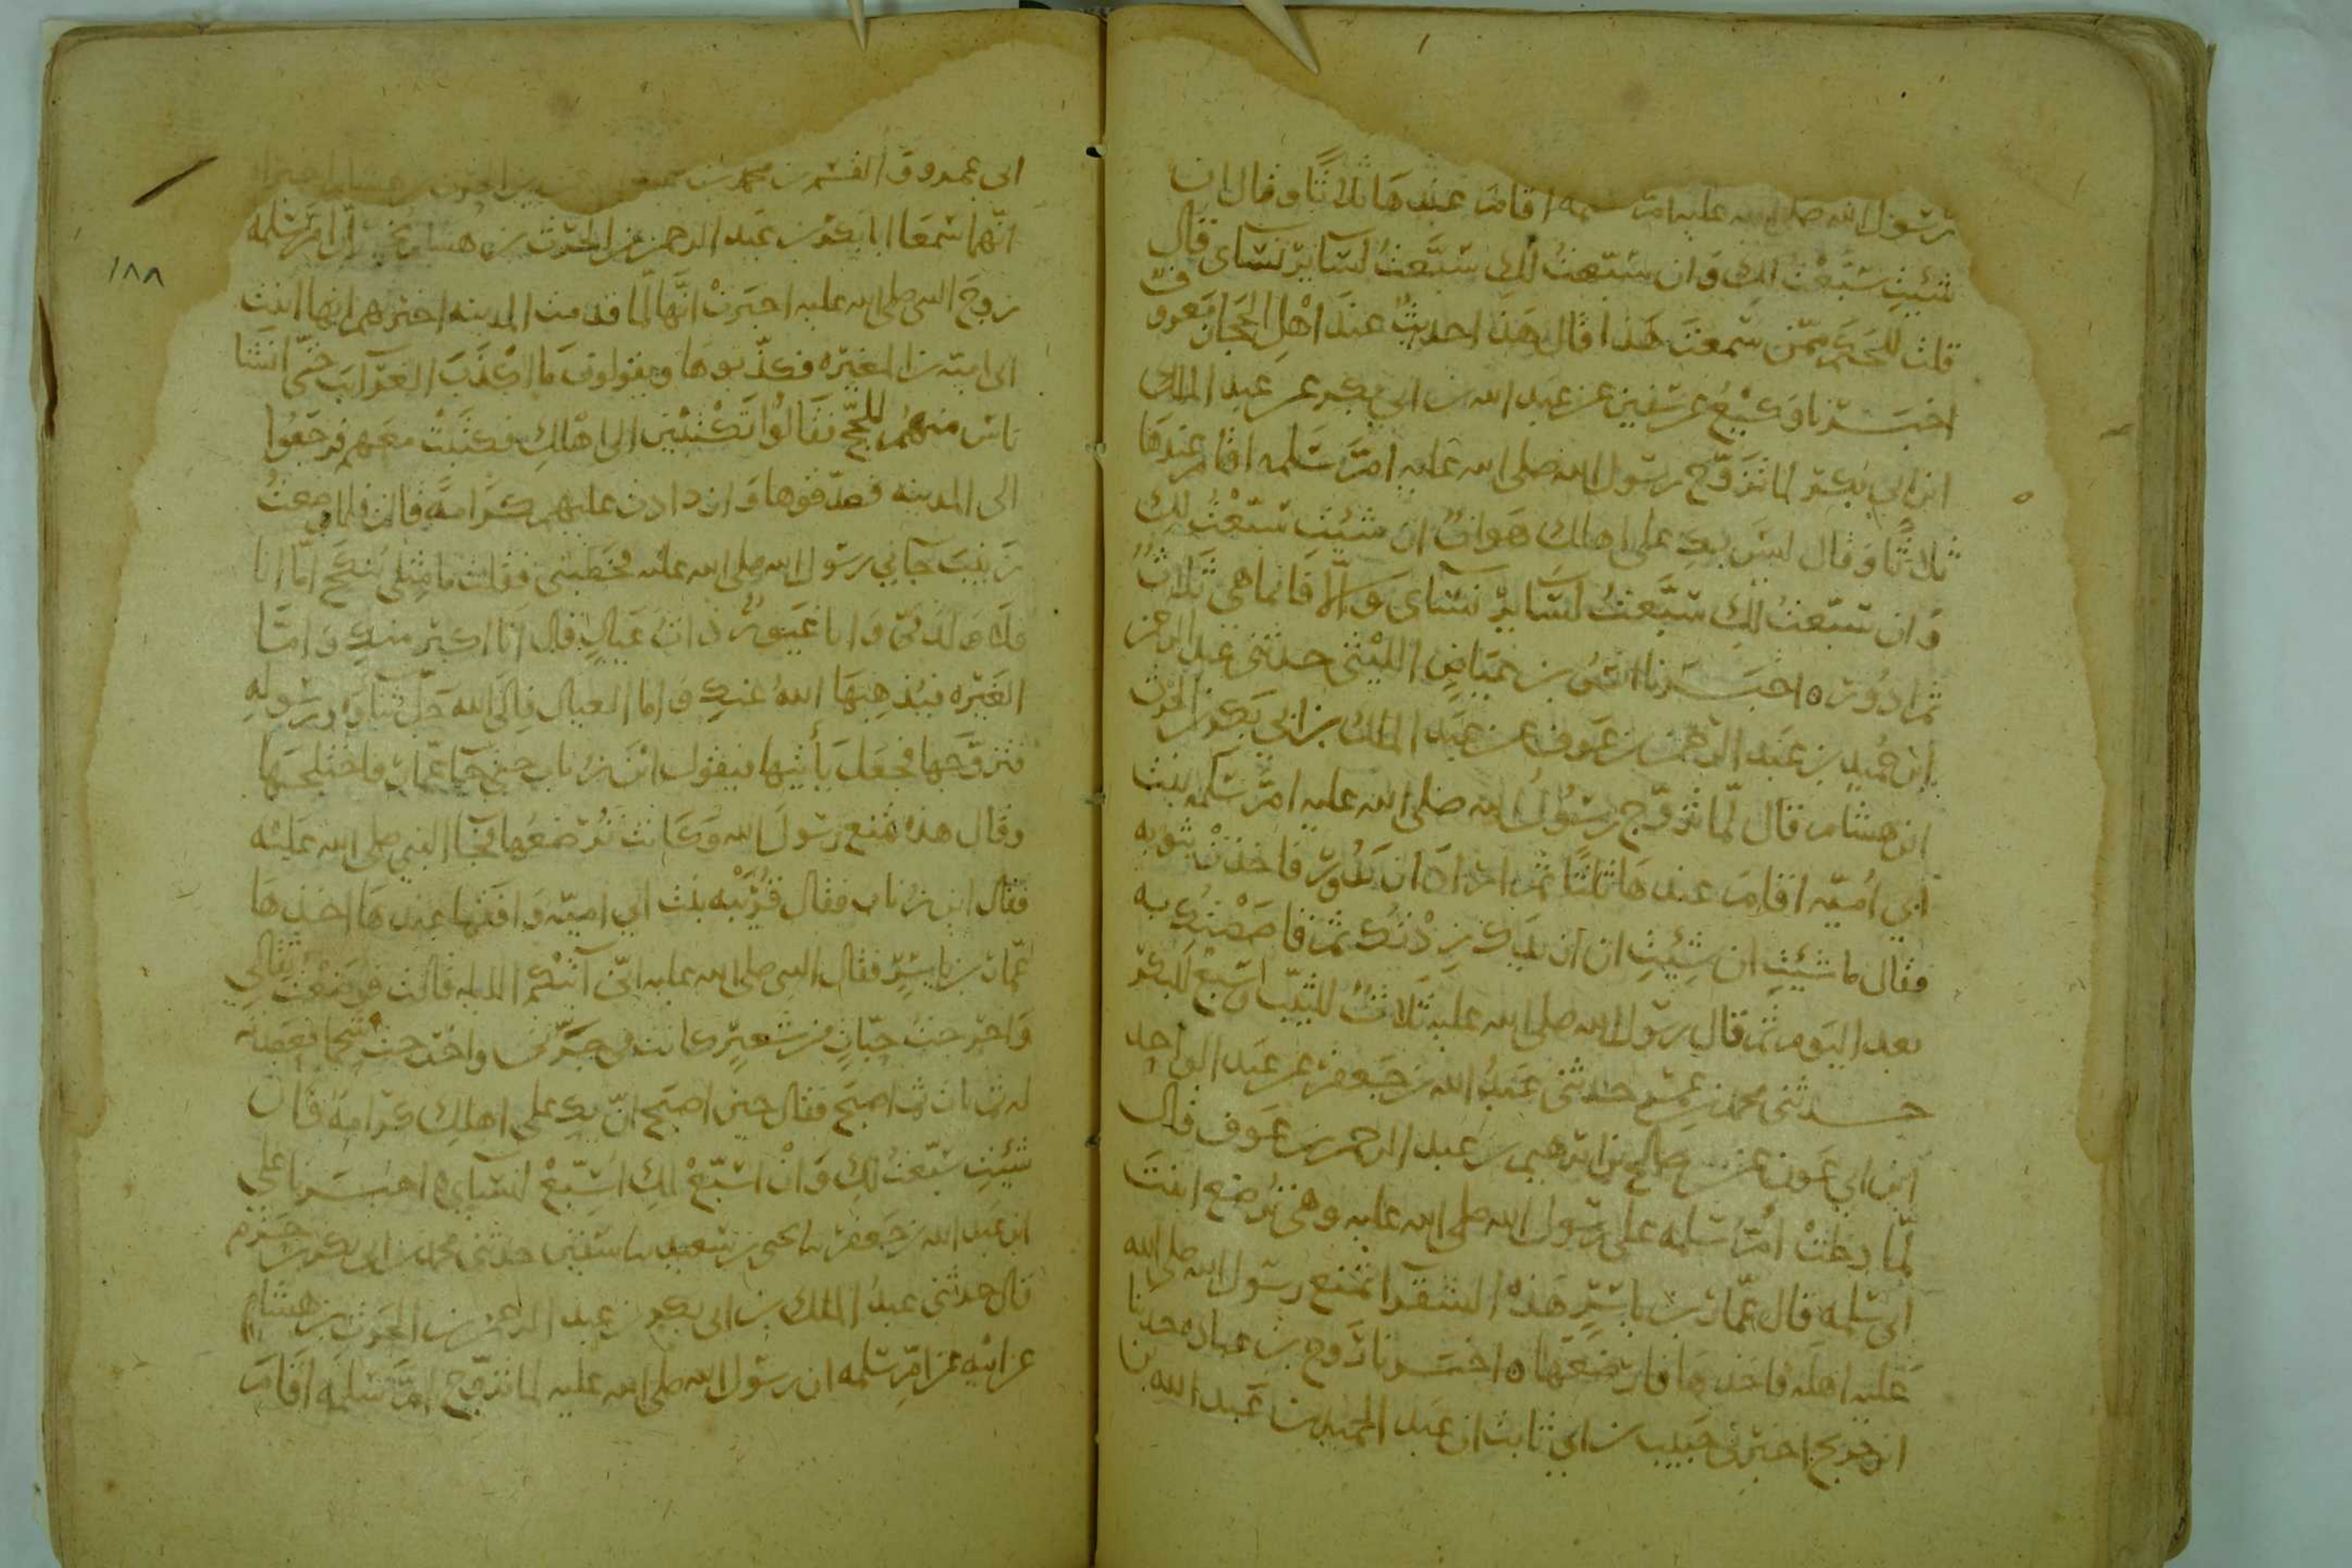 رسول الله صلى الله عليه ام سلمه اقام عندها ثلاثا وقال ان
شئتِ سبّعتُ لكِ وان سبّعتُ لكِ سبّعتُ لسايرِ نساى قال
قلت للحكم ممّن سمعتَ هذا قال هذا حديثٌ عند اهل الحجاز معروف
اخبرنا وكيعٌ عن سفين عن عبد الله بن ابى بكر عن عبد الملك
ابن ابى بكر لما تزوّج رسول الله صلى الله عليه امّ سلمه اقام عندها
ثلاثًا وقال ليس بكِ على اهلك هوانٌ ان شئتِ سبّعتُ لكِ
وان سبّعتُ لكِ سبّعتُ لسايرِ نساى والّا فانما هى ثلاثٌ
ثم ادُور ٥ اخبرنا انسُ بن عياضٍ الليثى حدثنى عبد الرحمن
ابن حُميدِ بن عبد الرحمن بن عوف عن عبد الملك بن ابي بكر بن الحرث
ابن هشام قال لمّا تزوّج رسولُ الله صلى الله عليه امّ سلمه بنت
ابي اُميّه اقام عندها ثلثًا ثم اراد ان يَدُور فاخذتْ بثوبه
فقال ما شئتِ ان شئتِ ان ازيدكِ زدتُكِ ثم قاصصتُكِ به
بعد اليوم ثم قال رسول الله صلى الله عليه ثلاثٌ للثيّب وسَبعٌ للبكر
حدثنى محمد بن عمر حدثنى عبدُ الله بن جعفر عن عبد الواحد
ابن ابى عون عن صالح بن ابرهيم بن عبد الرحمن بن عوف قال
لمّا دخلتْ امُّ سلمه على رسول الله صلى الله عليه وهى تُرضع ابنتَ
ابى سلمه قال عمّار بن ياسرٍ هذه الشقرا تمنع رسول الله صلى الله
عليه اهلَه فاخذها فارضعَها ٥ اخبرنا رَوح بن عباده حدثنا
ابن جريج اخبرنى حبيب بن ابي ثابت ان عبد الحميد بن عبد الله بن
ابى عمرو والقسم بن محمد بن
انّهما سمعا ابا بكر بن عبد الرحمن بن الحرث بن هشام يُخبر انّ امّ سلمه
زوج النبى صلى الله عليه اخبرتْ انّها لمّا قدمت المدينه اخبرتهم انها ابنت
ابى اميّه بن المغيره فكذّبوها ويقولون ما اكذَبَ الغرآيبَ حتّى انشا
ناسٌ منهم للحجّ فقالُوا تكتُبين الى اهلكِ فكتبتْ معهم فرجعُوا
الى المدينه فصدّقوها وازدادت عليهم كرامةً قالت فلما وضعتُ
زينبَ جآني رسول الله صلى الله عليه فخطبنى فقلت ما مثلى نُنكح امّا انا
فلا ولد فىّ وانا غيورٌ ذاتُ عيالٍ قال انا اكبرُ منكِ وامّا
الغيره فيُذهبها اللهُ عنكِ واما العيال فالى الله جلّ ثناوُه ورسُوله
فتزوّجها فجعل يأتيها فيقول اين زُناب حتى جا عمّار فاختلجها
وقال هذه تمنع رسول الله وكانت تُرضعُها فجا النبي صلى الله عليه
فقال اين زُناب فقال قُرَيبه بنت ابى اميّه وافقها عندها اخذها
عمّار بن ياسرٍ فقال النبى صلى الله عليه انّى آتيكم الليله قالت فوضعتُ ثفالى
واخرجتُ حبّاتٍ من شعيرٍ كانت فى جرّتى واخرجت شحما فعصدته
له ثم بات ثم اصبح فقال حين اصبح انّ بكِ على اهلكِ كرامةً فان
شئتِ سبّعتُ لكِ وانْ اُسبّعْ لكِ اُسبّعْ لنسآيى ٥ اخبرنا على
ابن عبد الله بن جعفر نا يحيى بن سعيد نا سفين حدثنى محمد بن ابى بكر بن حزم
قال حدثنى عبدُ الملك بن ابى بكر بن عبد الرحمن بن الحرث بن هشام
عن ابيه عن امّ سلمه ان رسول الله صلى الله عليه لما تزوّج امّ سلمه اقام
١٨٨